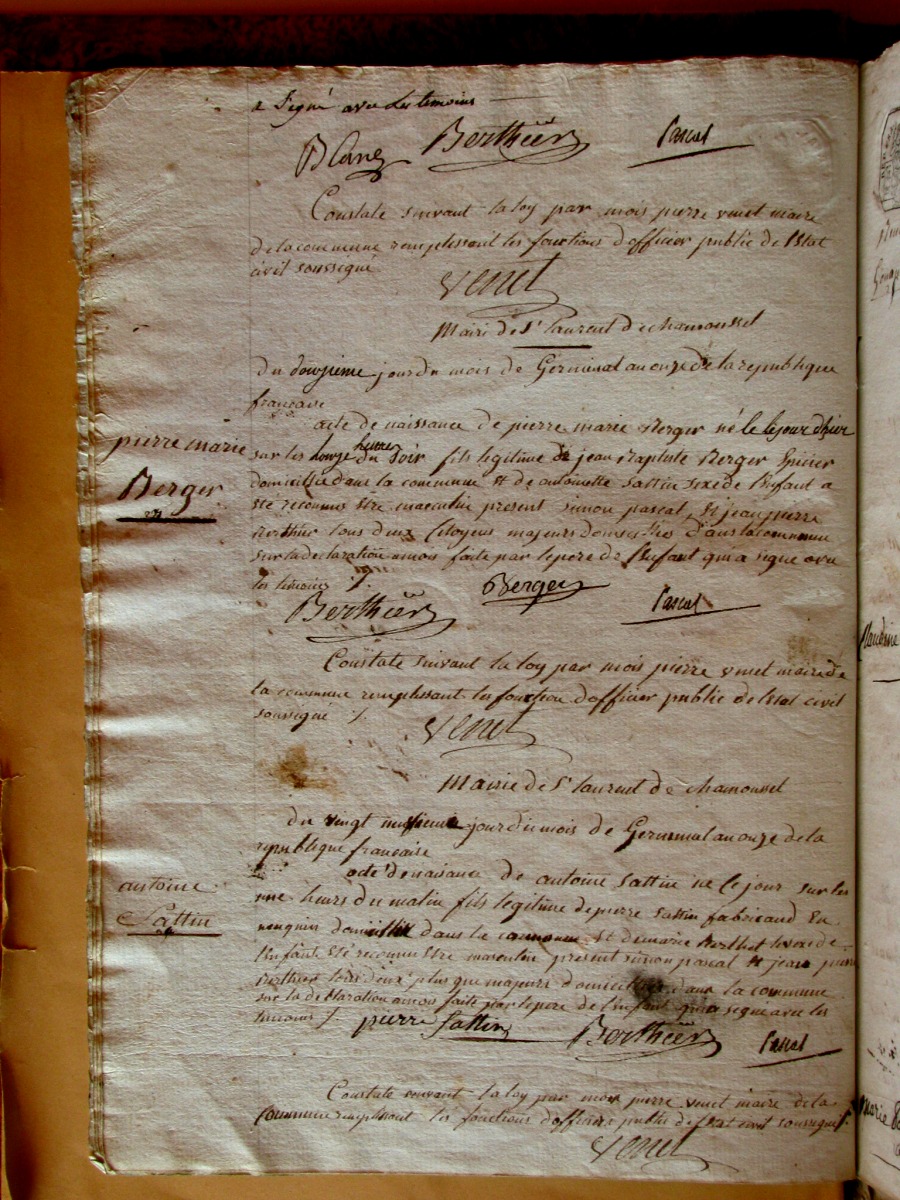 a Signé avec Les temoins
Blanc Berthier Pascal
Constate suivant la loy par mois pierre venet maire
de la commune remplissant les fonctions d'officier public de l'état
civil soussigné
venet
Mairi de St laurent de chamousset
du douzieme jour du mois de Germinal an onze de la republique
francaise
acte de naissance de pierre marie Berger né le le jour d'hier
pierre marie
sur les douze heures du soir fils legitime de jean Baptiste Berger Epicier
Berger
domicillié dans la commune et de antoinette Sattin sexe de l'enfant a
été reconnus être masculin present simon pascal, et jean pierre
Berthier tous deux Citoyens majeurs domicilliés dans la commune
sur la declaration a mois faite par le pere de l'enfant qui a signe avec
les temoins %.
Berger
Berthier Pascal
Constate suivant la loy par mois pierre venet maire de
la commune remplissant les fonction d'officier public de l'état civil
soussigné %.
venet
Mairie de St laurent de chamousset
du vingt jour du mois de Germinal an onze de la
republique francaise
acte de naisance de antoine Sattin ne le jour sur les
antoine
une heurs du matin fils legitime de pierre Sattin fabricand En
Sattin
domicillié dans la commune et de marie Berthet le sexe de
l'enfant a été reconnu être masculin present simon pascal et jean pierre
Berthier tous deux plus que majeurs domicilliés dans la commune
sur la declaration a mois faite par le pere de l'enfant qui a signe avec les
temoins %. pierre Sattin Berthier Pascal
Constate suivant la loy par mois pierre venet maire de la
commune remplissant les fonctions d'officier public de l'état civil soussigné %.
venet